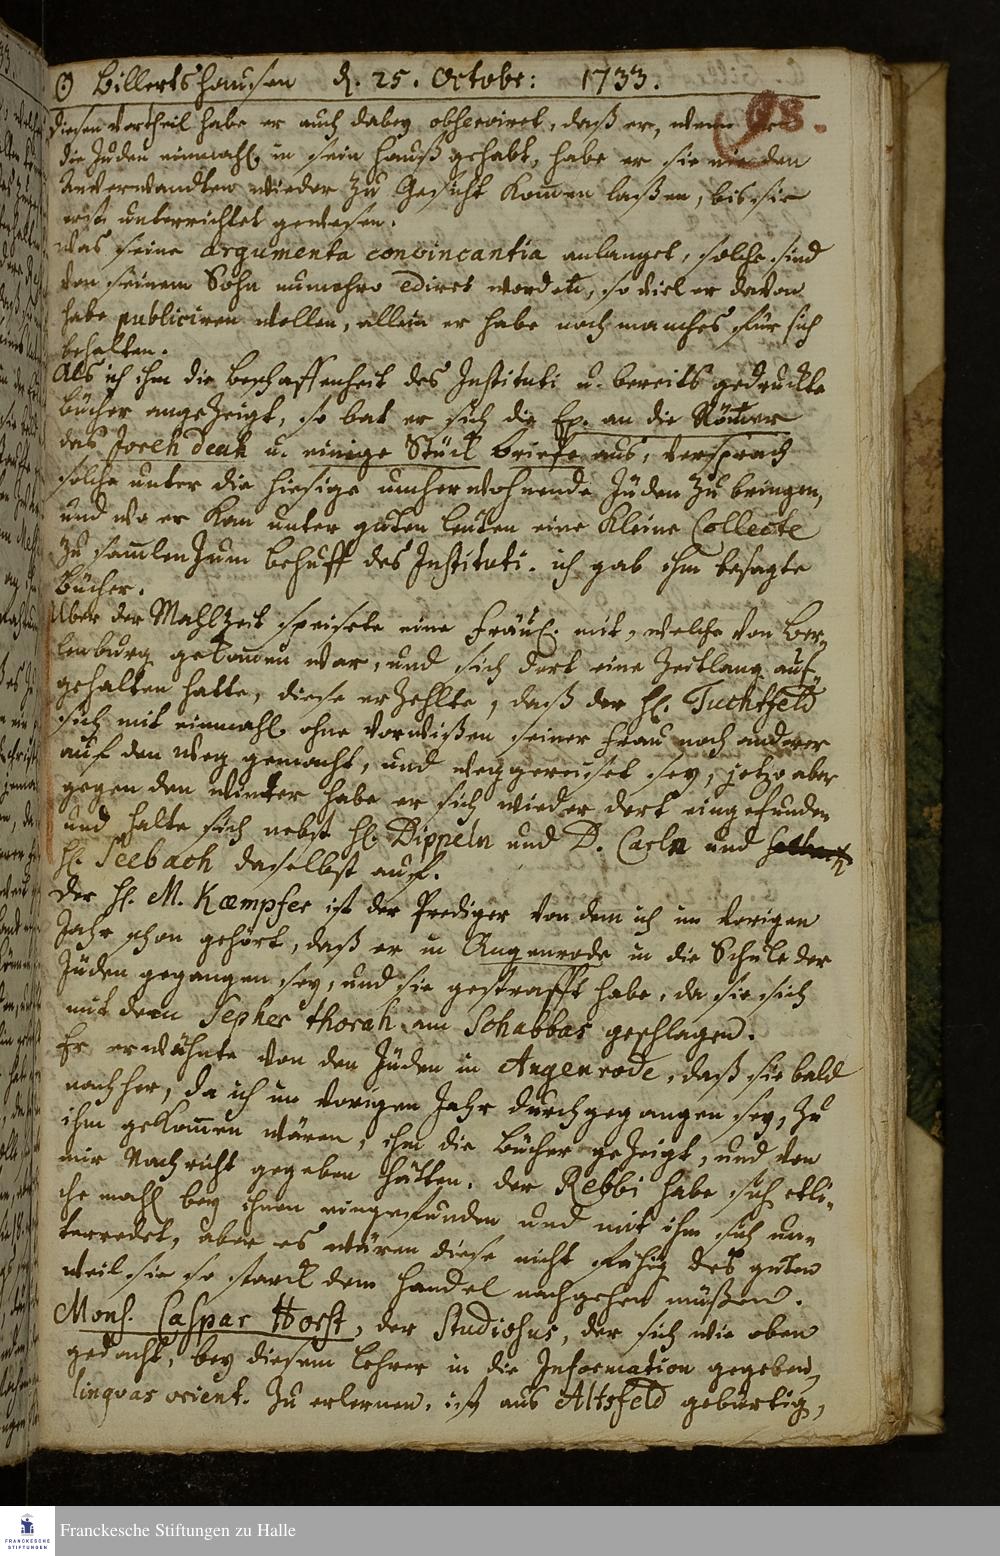 ☉ Billertshausen d. 25. Octobr: 1733.
98.
diesen Vortheil habe er auch dabey observiret, daß er, wenn er
die Juden einmahl in sein Hauß gehabt, habe er sie nie den
Anverwandten wieder zu Gesicht kom̄en laßen, bis sie
erst unterrichtet gewesen.
Was seine argumenta convincantia anlanget, solche sind
von seinem Sohn nunmehro ediret worden, so viel er davon
habe publiciren wollen, allein er habe noch manches für sich
behalten.
Als ich ihm die Beschaffenheit des Instituti u. bereits gedruckte
Bücher angezeigt, so bat er sich die Ep. an die Römer
das Joreh deah u. einige Stück Briefe aus, versprach
solche unter die hiesige umherwohnende Juden zu bringen,
und wo er kan unter guten Leuten eine kleine Collecte
zu sam̄len zum behuff des Instituti. ich gab ihm besagte
Bücher.
Über der Mahlzeit speisete eine Fräul. mit, welche von Ber„
lenburg gekom̄en war, und sich dort eine Zeitlang auf„
gehalten hatte, diese erzehlte, daß der H. Tuchtfeld
sich mit einmahl ohne Vorwißen seiner Frau noch anderer
auf den Weg gemacht, und weggereiset sey, jetzo aber
gegen den Winter habe er sich wieder dort eingefunden
und halte sich nebst H. Dippeln und D. Carln und
H. Seebach daselbst auf.
Der H. M. Kæmpfer ist der Prediger von dem ich im vorigen
Jahr schon gehört, daß er in Angenrode in die Schule der
Juden gegangen sey, und sie gestrafft habe, da sie sich
mit dem Sepher thorah am Schabbas geschlagen.
Er erwähnte von den Juden in Angenrode, daß sie bald
nachher, da ich im vorigen Jahr durchgegangen sey, zu
ihm gekom̄en wären, ihm die Bücher gezeigt, und von
mir Nachricht gegeben hätten. der Rebbi habe sich etli„
che mahl bey ihnen eingefunden und mit ihm sich un„
terredet, aber es wären diese nicht fähig des guten
weil sie so starck dem Handel nachgehen müßen.
Mons. Caspar Horst, der Studiosus, der sich wie oben
gedacht, bey diesem Lehrer in die Information gegeben,
lingvas orient. zu erlernen, ist aus Altsfeld gebürtig,
Franckesche Stiftungen zu Halle
FRANCKESCHE
STIFTUNGEN